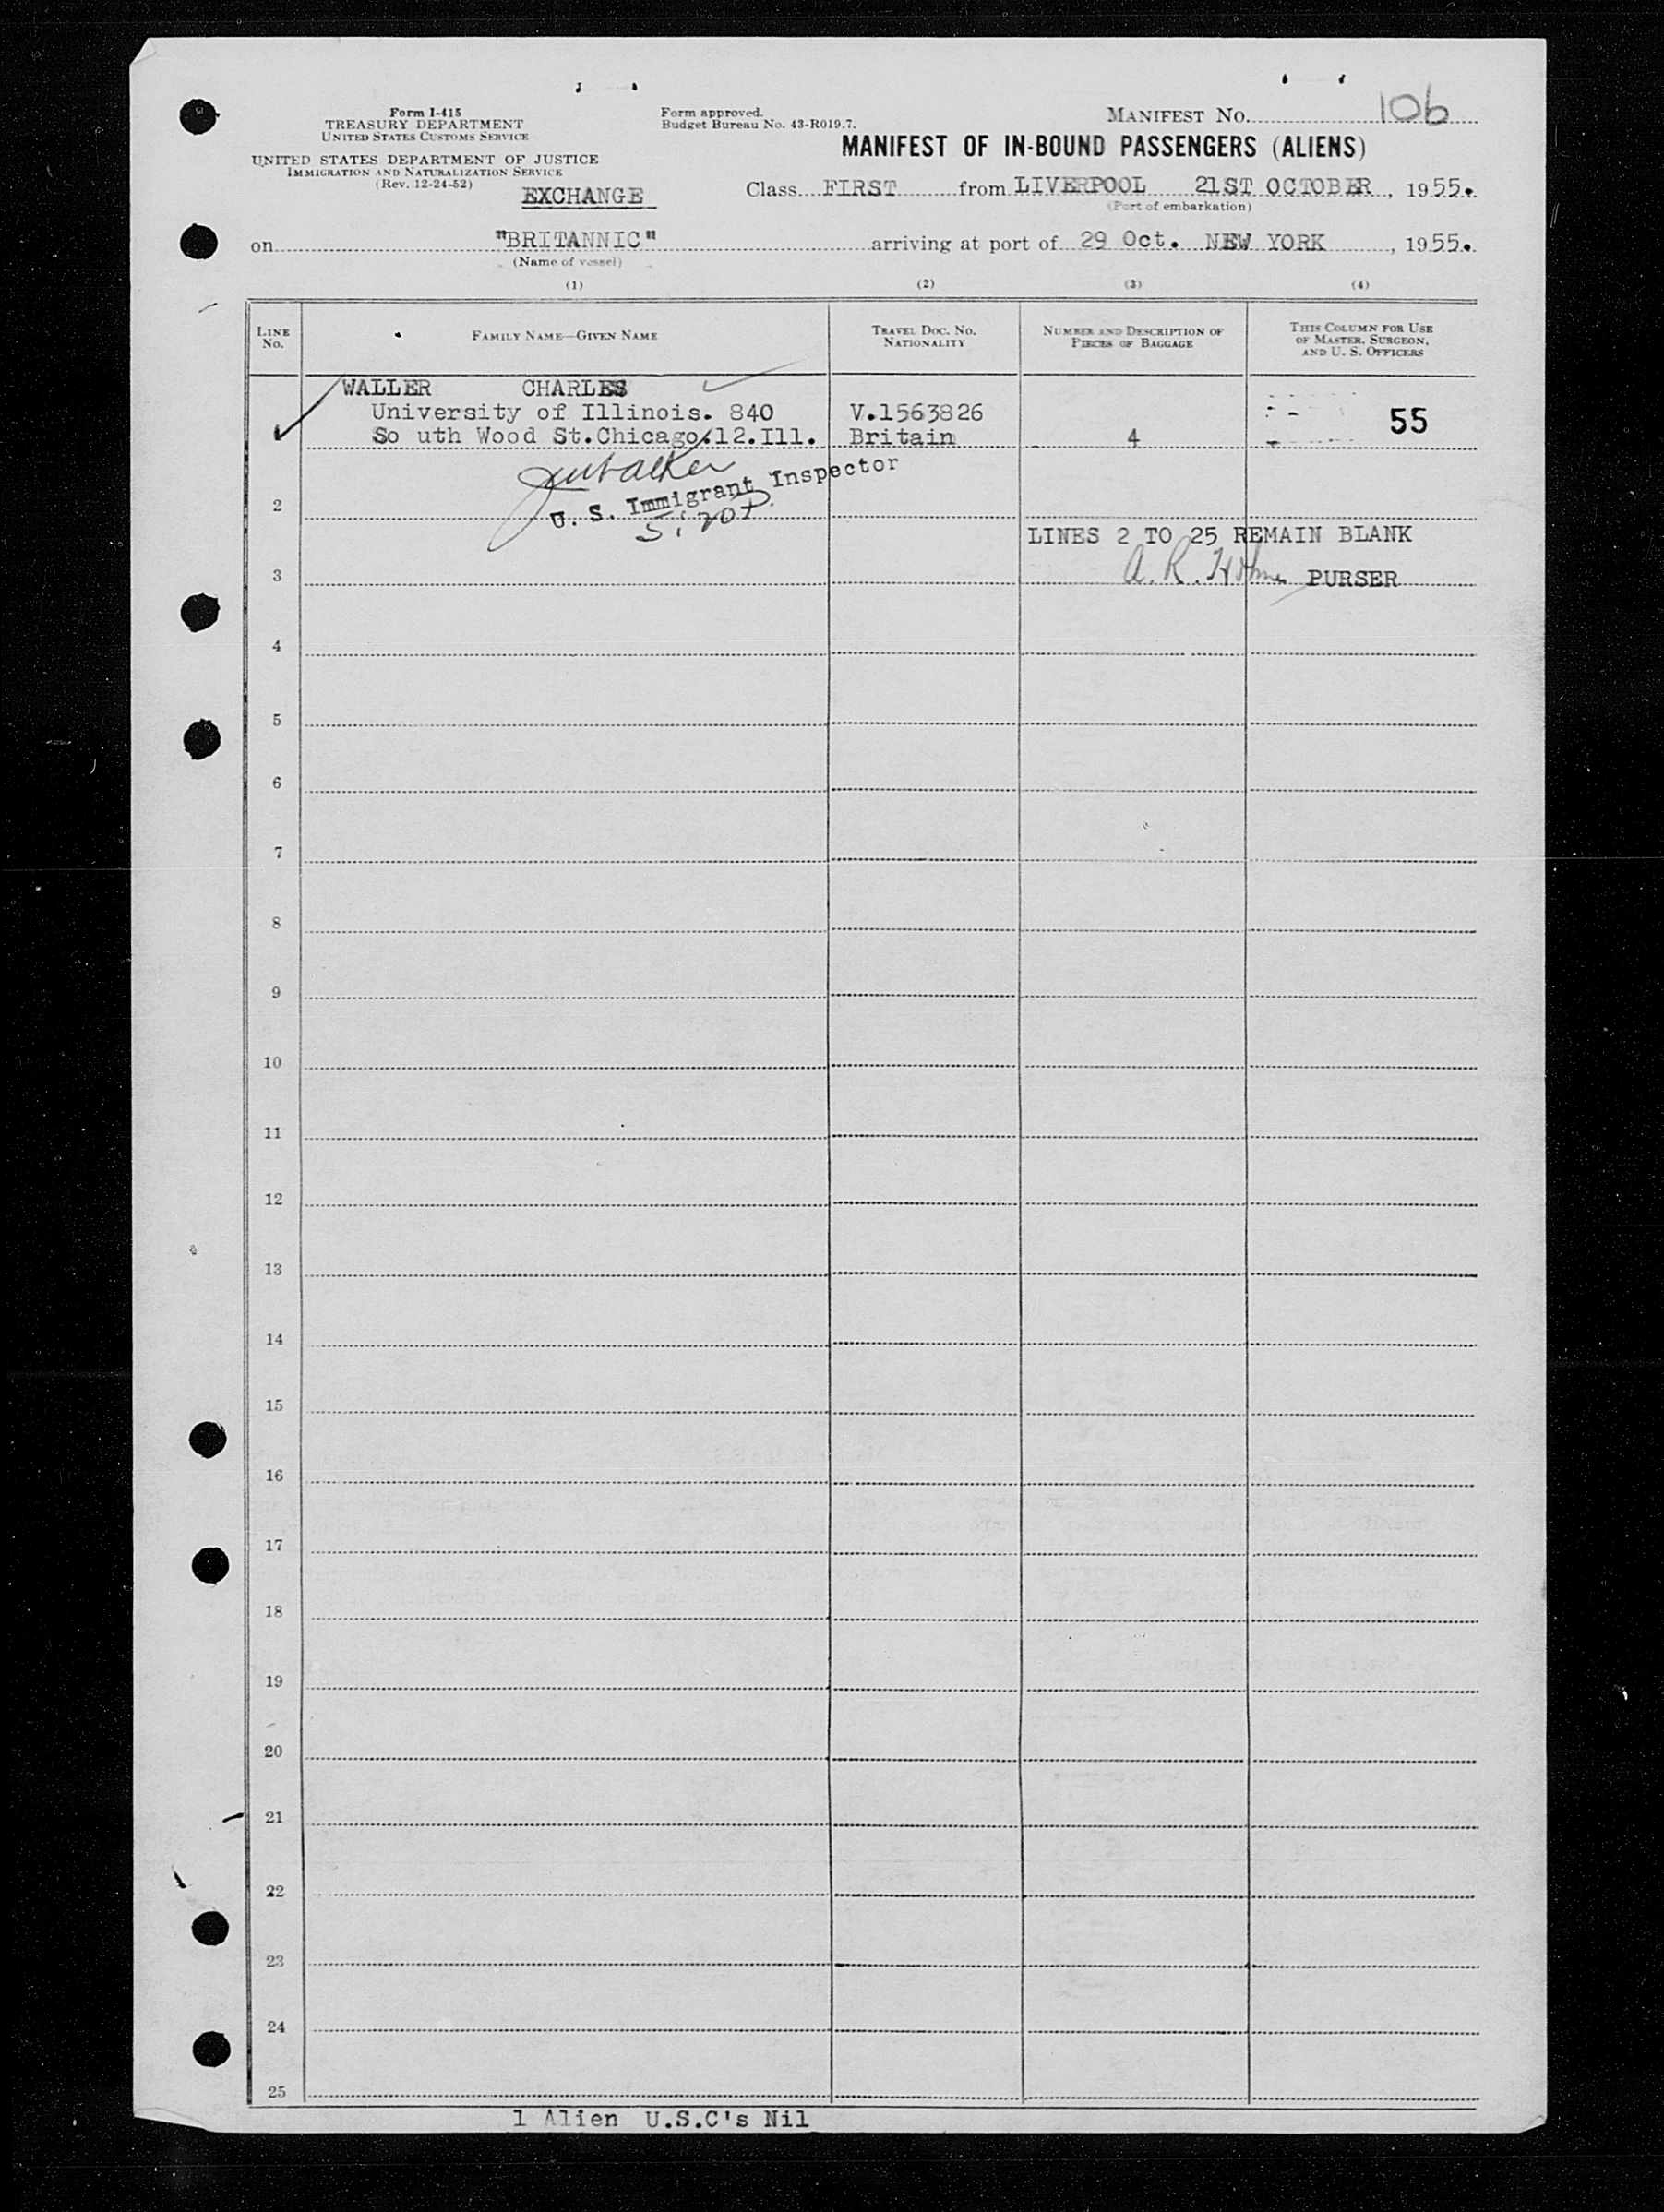 Form I-415
TREASURY DEPARTMENT
UNITED STATES CUSTOMS SERVICE
UNITED STATES DEPARTMENT OF JUSTICE
IMMIGRATION AND NATURALIZATION SERVICE
(Rev. 12-24-52)
EXCHANGE
Form approved.
Budget Bureau No. 43-R019.7.
MANIFEST NO. 106
MANIFEST OF IN-BOUND PASSENGERS (ALIENS)
Class FIRST from LIVERPOOL 21ST OCTOBER, 1955.
(Port of embarkation)
on "BRITANNIC" arriving at port of 29 Oct. NEW YORK, 1955.
(Name of vessel)
(1) (2) (3) (4)
LINE NO.
FAMILY NAME—GIVEN NAME
TRAVEL DOC. NO. NATIONALITY
NUMBER AND DESCRIPTION OF PIECES OF BAGGAGE
THIS COLUMN FOR USE OF MASTER, SURGEON, AND U. S. OFFICERS
WALLER CHARLES
University of Illinois. 840 V.1563826 55
So uth Wood St.Chicago.12.Ill. Britain 4
U. S. Immigrant Inspector
2
LINES 2 TO 25 REMAIN BLANK
3 A. R. PURSER
4
5
6
7
8
9
10
11
12
13
14
15
16
17
18
19
20
21
22
23
24
25
1 Alien U.S.C's Nil